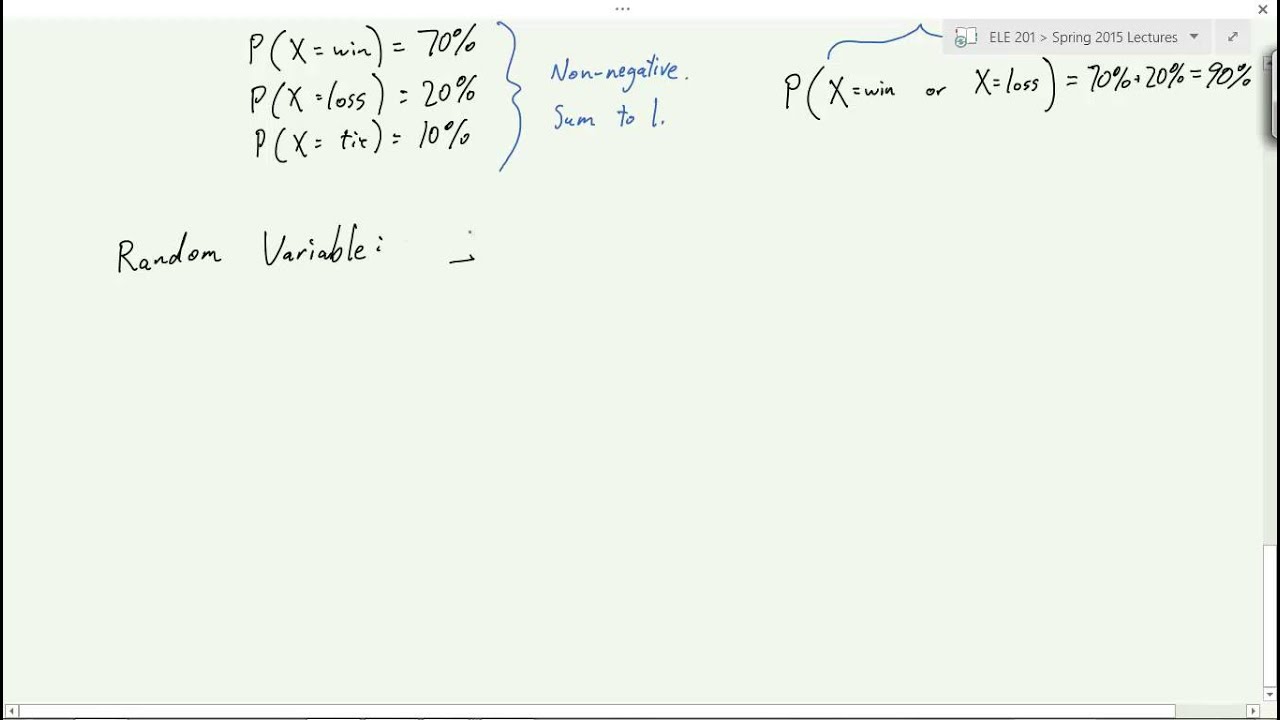 ELE 201 > Spring 2015 Lectures
P(X = win) = 70%
P(X = loss) = 20%
P(X = tie) = 10%
Non-negative.
Sum to 1.
P(X = win or X = loss) = 70% + 20% = 90%
Random Variable: